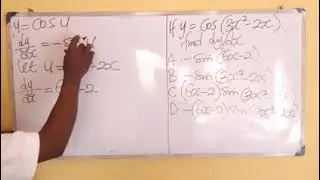 y = cos u
dy/dx = -
let u = -2x
dy/dx = -2
If y = cos(3x²-2x)
find dy/dx
A. -sin(6x-2)
B. -sin(3x²-2x)
C (6x-2)sin(3x²
D -(6x-2)sin